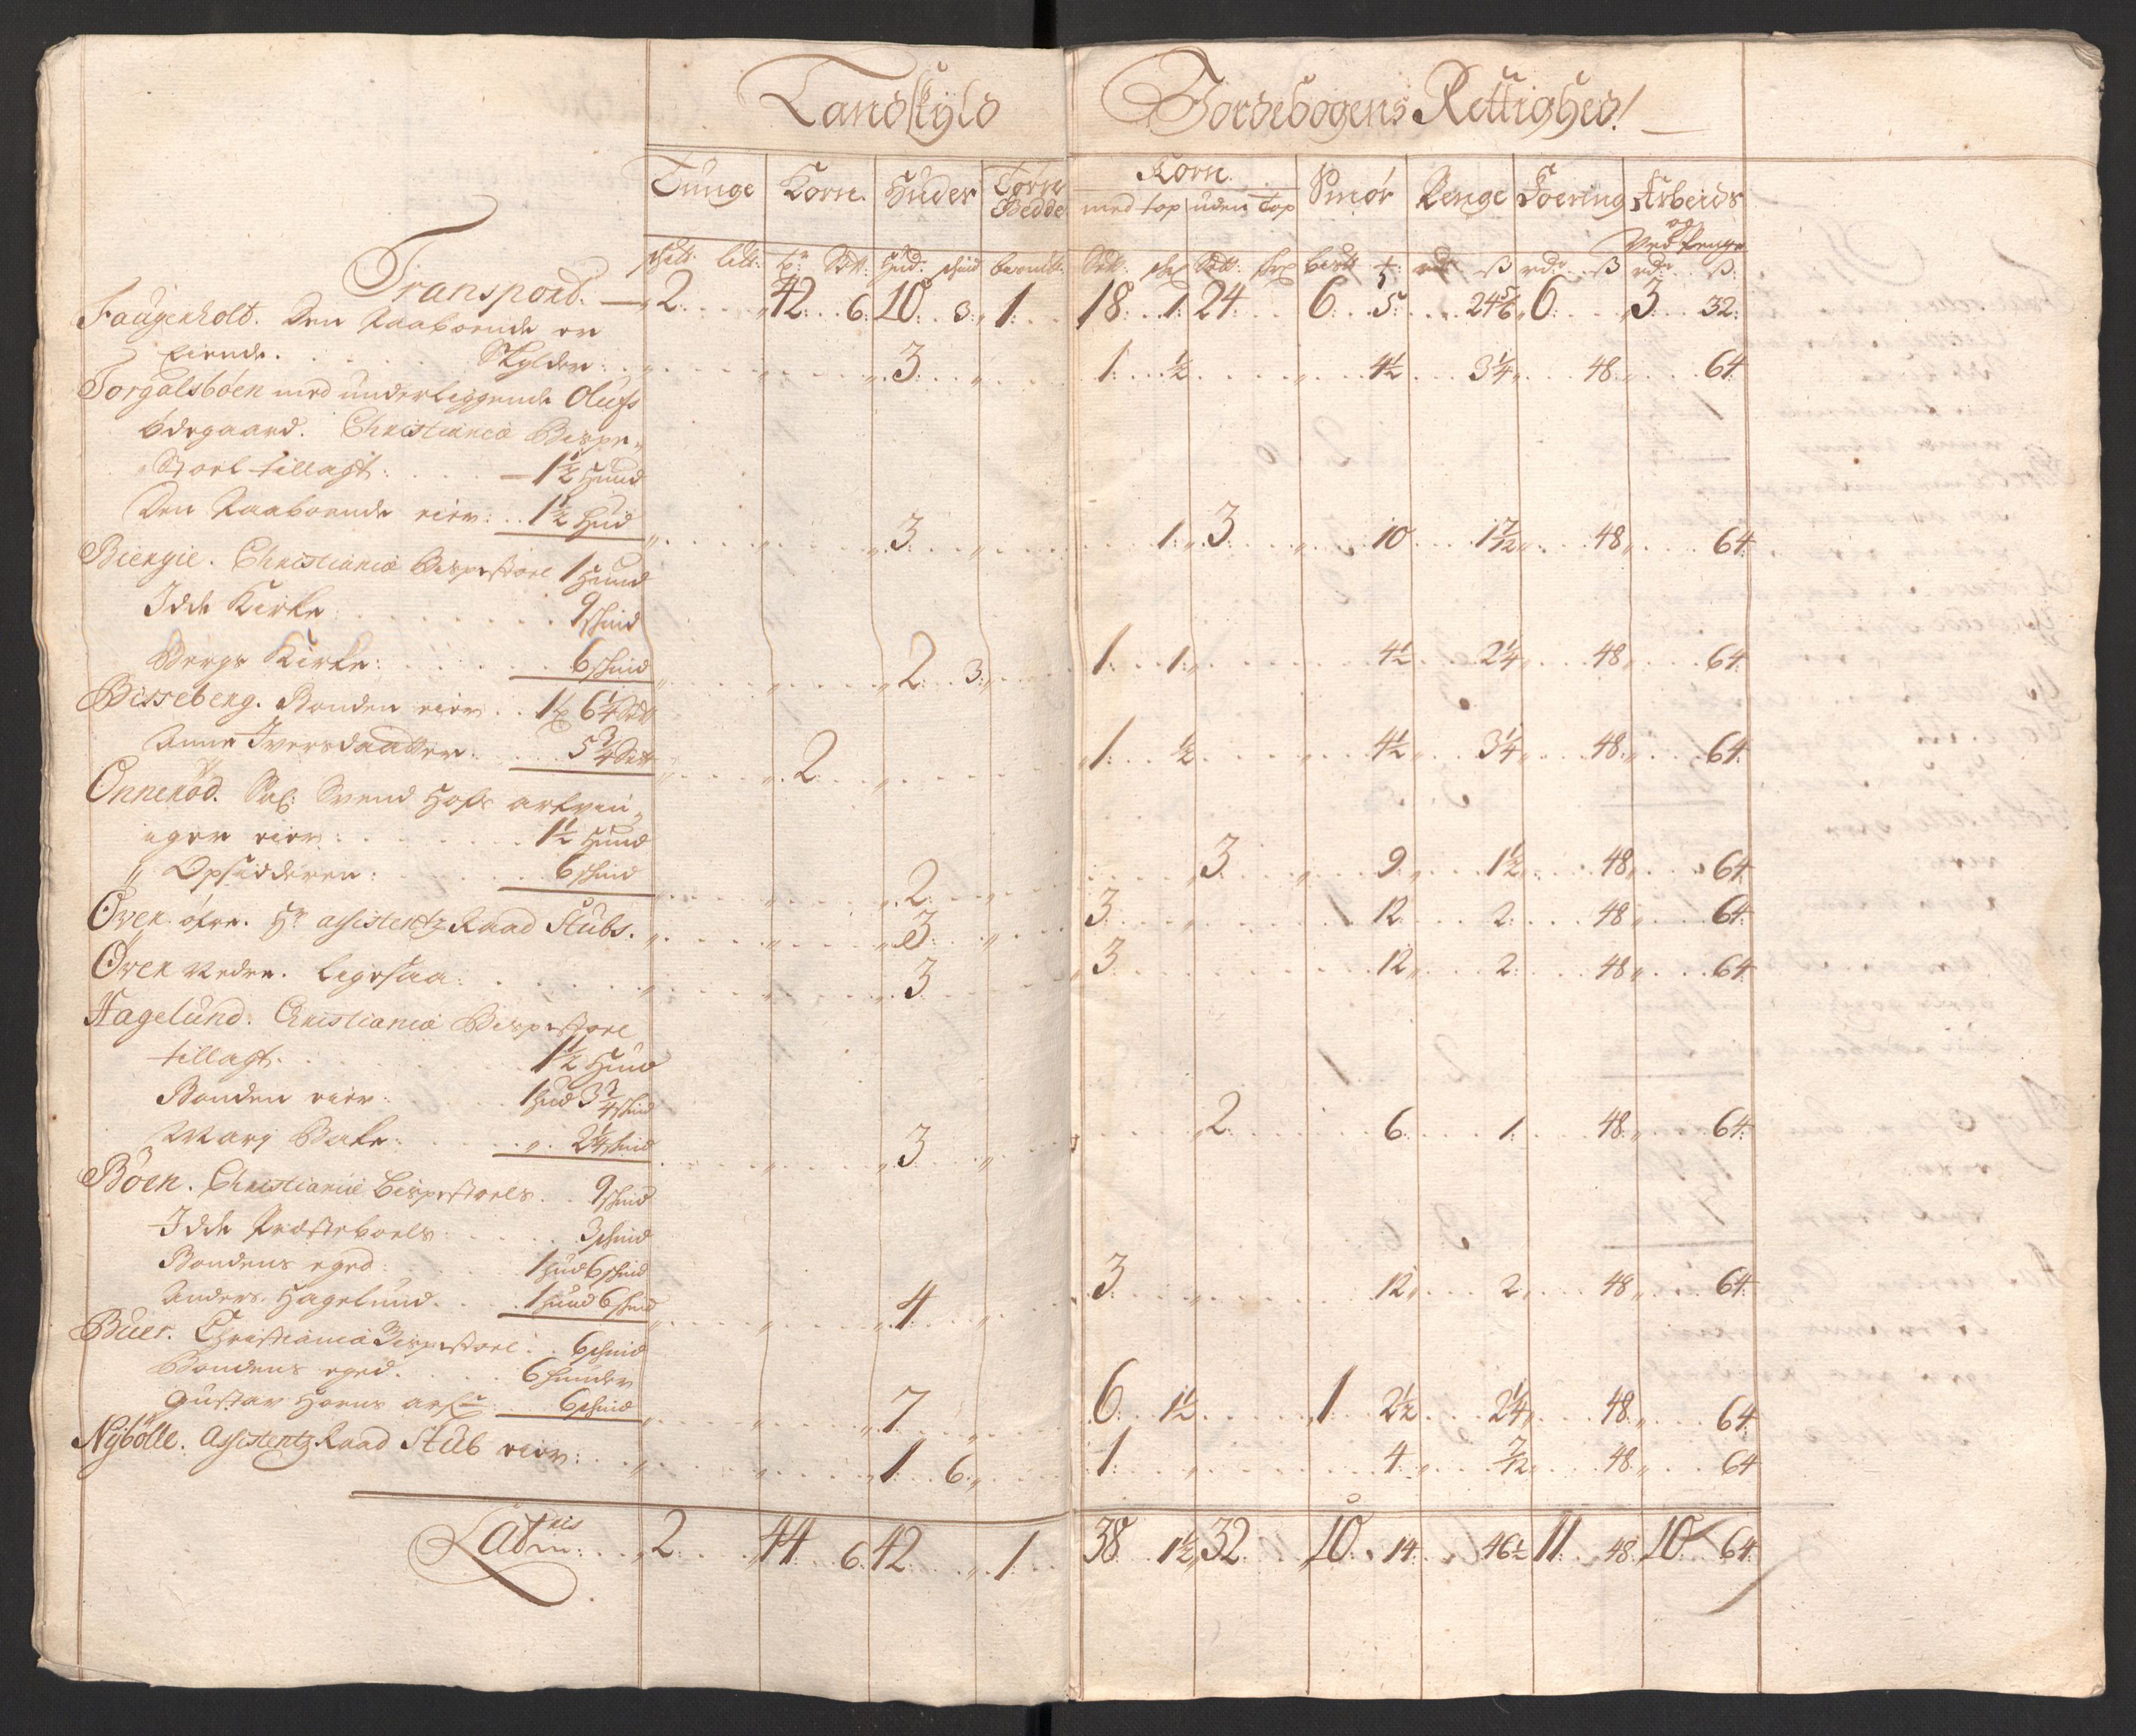 Landskÿld
Jordebogens Rettighed!
Tunge Korn. Huder Tørre Bedde
Korn. Smór Penge Foering Arbeids
med top uden Top og Ved Penge
Transport. — 2. 42. 6. 10. 3. 1. 18. 1. 24. 6. 5. 24 5/6 6. 3. 32.
Faugenholt. Den Paaboende er
Eiende. Skylder: 3. 1. 1/2 4 1/2 3 1/4 48. 64.
Torgalsbóen med underliggende Olufs
ødegaard. Christiania Bispe-
Stoel tillagt: — 1 1/2 Huud
Den Paaboende eier: 1 1/2 Hud 3. 1. 3. 10 1 7/12 48. 64.
Biengie. Christiania Bispestoel 1 Huud
Idde Kirke 9 skind
Bergs Kirke: 6 skind 2. 3. 1. 1. 4 1/2 2 1/4 48. 64.
Bisseberg. Bonden eier. 1 6 1/4 Sett
Anne Iversdaatter. 5 3/4 Sett 2. 1. 1/2 4 1/2 3 1/4 48. 64.
Onneród. Sal: Svend Hofs arfvin-
ger eier: 1 1/2 Huud
" Opsidderen: 6 skind 2. 3. 9. 1 1/2 48. 64.
Óven. öfre. Hr assistentz Raad Stubs. 3. 3. 12. 2. 48. 64.
Óven Nedre. Ligesaa. 3 3. 12. 2. 48. 64.
Hagelund. Christiania Bispestoel
tillagt. 1 1/2 Huud
Bonden eier. 1 Hud 3 3/4 skind
Marg Bakr. 2 1/4 skind 3. 2. 6. 1. 48. 64.
Bóen. Christiania bispestoels. 9 skind
Idde Præsteboels 3 skind
Bondens eged 1 Hud 6 skind
Anders Hagelund. 1 huud 6 skind 4. 3. 12. 2. 48. 64.
Buer. Christiania Bispestoel. 6 skind
Bondens eged. 6 Huuder
Gustav Horns arf: 6 skind 7. 6. 1 1/2 1 2 1/2 2 1/4 48. 64.
Nÿbólle. Assistentz Raad Stub eier: 1. 6. 1. 4. 7/12 48. 64
Latris: 2. 44. 6. 42. 1. 38. 1 1/2 32. 10. 14. 46 1/2 11. 48. 10. 64.